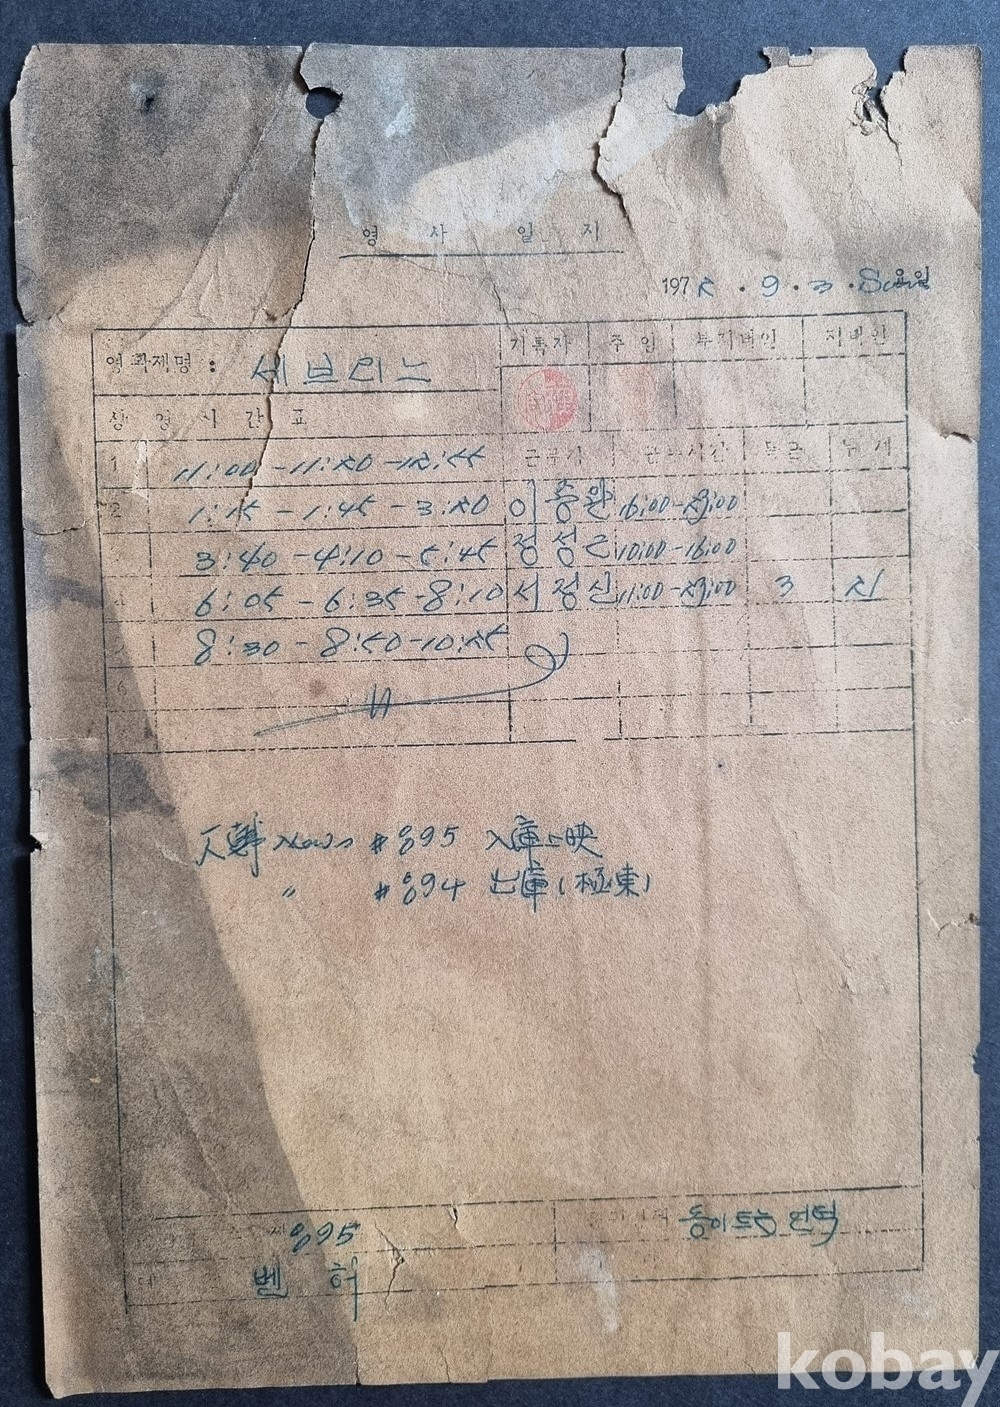 영 사 일 지
1972 . 9 . 3 . Sun 요일
영화제명 : 세브리느
기록자 주임 부지배인 지배인
상 영 시 간 표
1 11:00 - 11:20 - 12:55
근무자 근무시간
2 1:15 - 1:45 - 3:20 이종완 16:00 - 22:00
3:40 - 4:10 - 5:45 정성근 10:00 - 16:00
4 6:05 - 6:35 - 8:10 서정신 11:00 - 22:00 3
8:30 - 8:50 - 10:25
6
News # 895 入庫上映
〃 # 894 出庫 (極東)
895 동이트는 언덕
벤 허
kobay